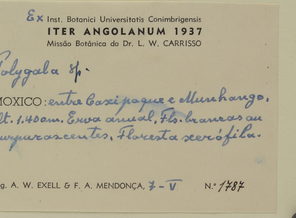 Ex Inst. Botanici Universitatis Conimbrigensis
ITER ANGOLANUM 1937
Missão Botânica do Dr. L. W. CARRISSO
Polygala sp.
MOXICO: entre Caxipoque e Munhango,
lt. 1.40am. Erva anual, Fls. brancas ou
purpurascentes, Floresta xerófila.
g. A. W. EXELL & F. A. MENDONÇA, 7-V N.º 1787